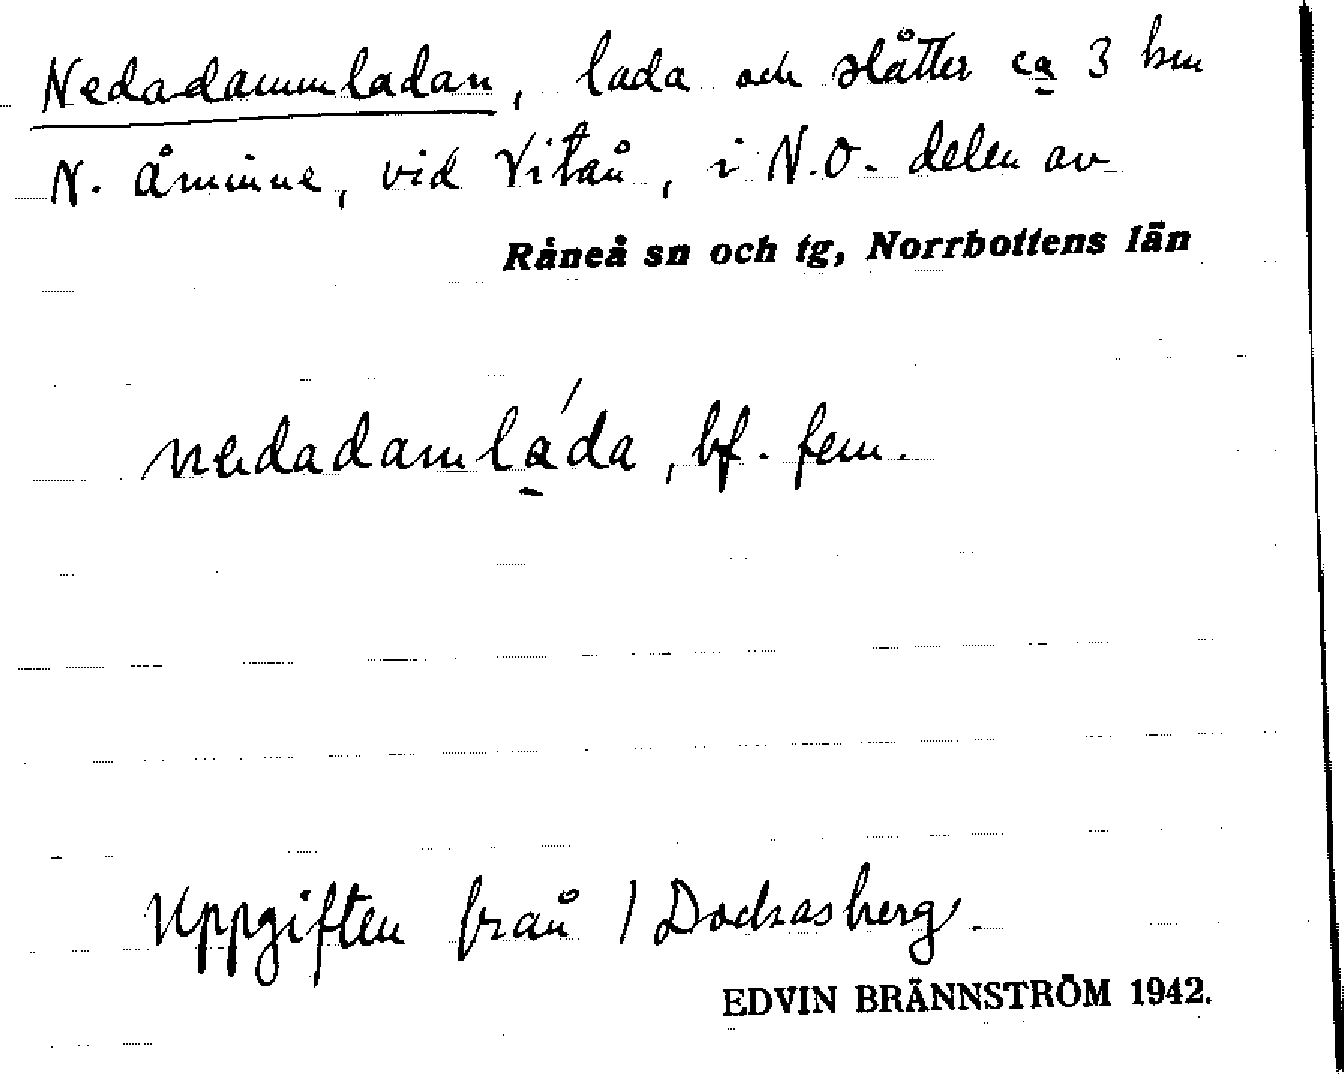 Nedadammladan, lada och slåtter ca 3 km
N. Åminne, vid Vitån, i N.O. delen av
Råneå sn och tg, Norrbottens län
nedadamlá̱da, bf. fem.
Uppgiften från 1 Dockasberg.
EDVIN BRÄNNSTRÖM 1942.